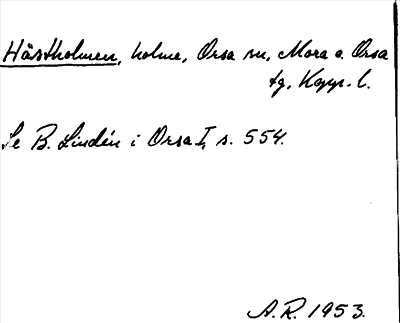 Hästholmen, holme, Orsa sn, Mora o. Orsa
tg, Kopp. l.
Se B. Lindén i Orsa I, s. 554.
A.R. 1953.